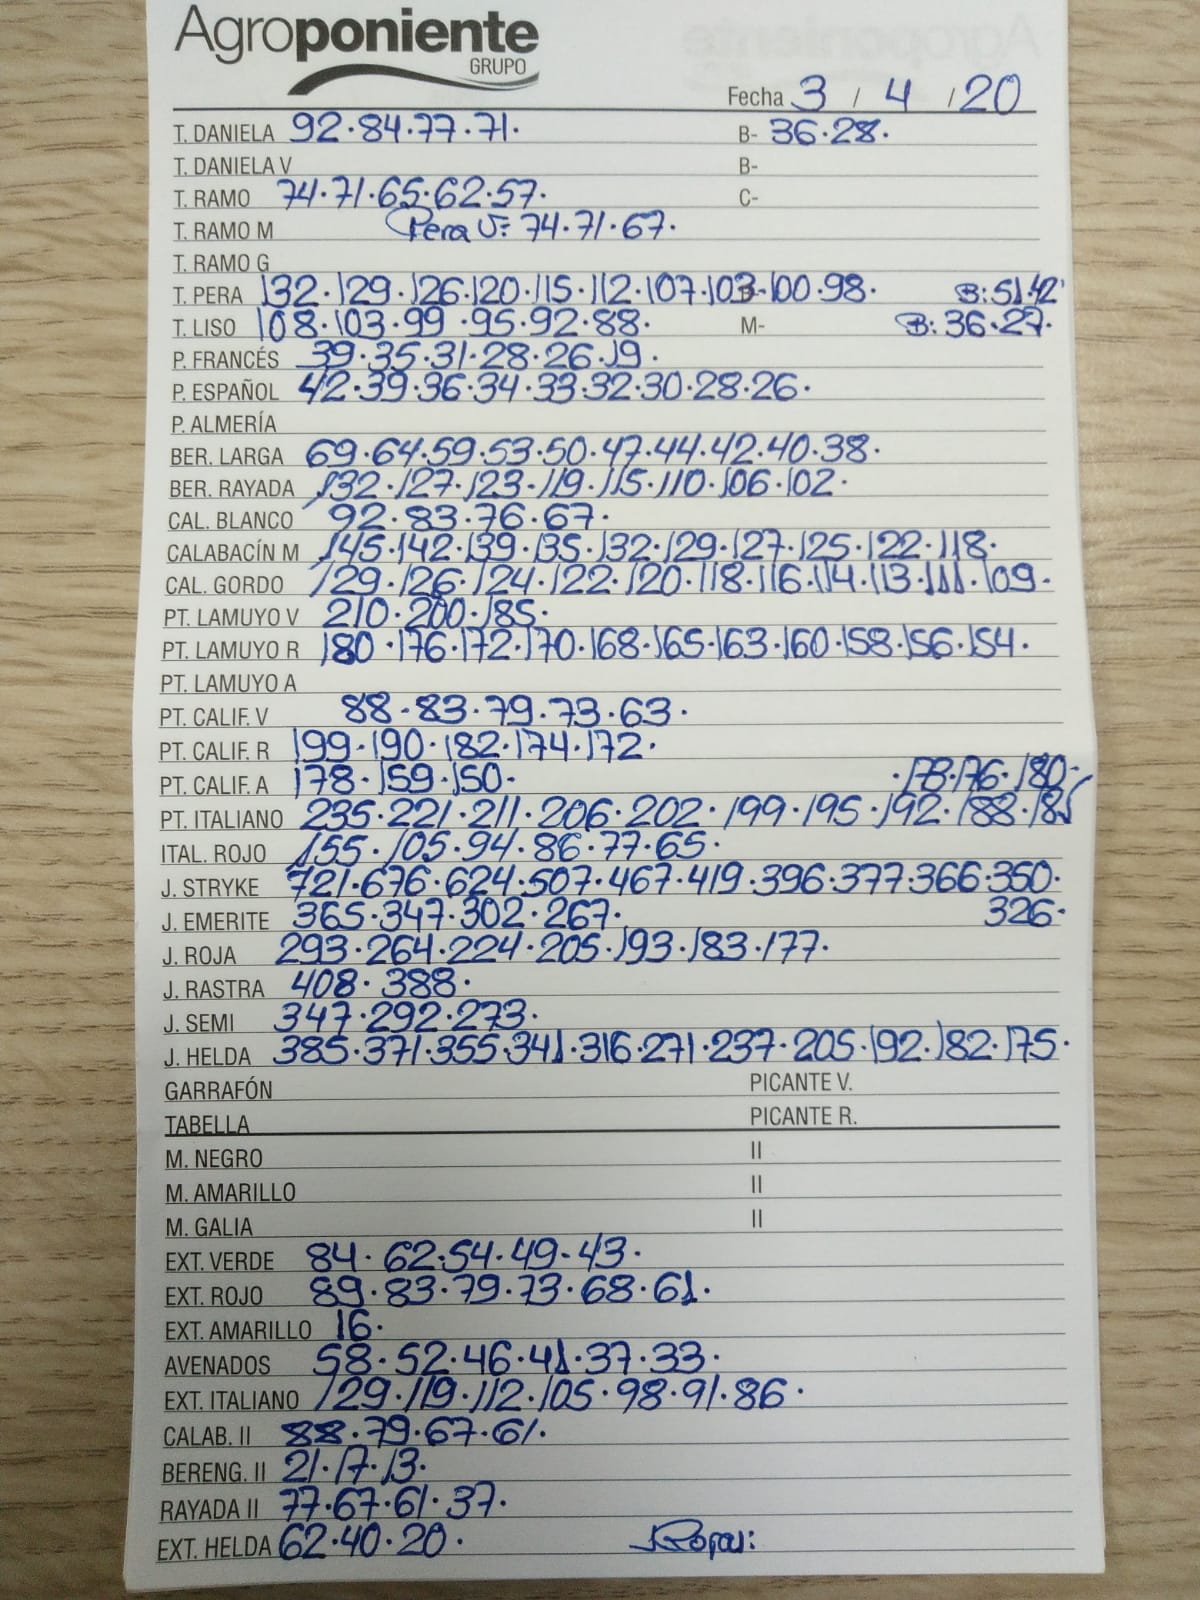 Agroponiente
GRUPO
Fecha 3 / 4 / 20
T. DANIELA 92·84·77·71· B- 36·28·
T. DANIELA V B-
T. RAMO 74·71·65·62·57· C-
T. RAMO M Pera V: 74·71·67·
T. RAMO G
T. PERA 132·129·126·120·115·112·107·103·100·98· B: 51·42·
T. LISO 108·103·99·95·92·88· M- B: 36·27·
P. FRANCÉS 39·35·31·28·26·19·
P. ESPAÑOL 42·39·36·34·33·32·30·28·26·
P. ALMERÍA
BER. LARGA 69·64·59·53·50·47·44·42·40·38·
BER. RAYADA 132·127·123·119·115·110·106·102·
CAL. BLANCO 92·83·76·67·
CALABACÍN M 145·142·139·135·132·129·127·125·122·118·
CAL. GORDO 129·126·124·122·120·118·116·114·113·111·109·
PT. LAMUYO V 210·200·185·
PT. LAMUYO R 180·176·172·170·168·165·163·160·158·156·154·
PT. LAMUYO A
PT. CALIF. V 88·83·79·73·63·
PT. CALIF. R 199·190·182·174·172·
PT. CALIF. A 178·159·150· ·176·180·
PT. ITALIANO 235·221·211·206·202·199·195·192·188·185
ITAL. ROJO 155·105·94·86·77·65·
J. STRYKE 721·676·624·507·467·419·396·377·366·350·
J. EMERITE 365·347·302·267· 326·
J. ROJA 293·264·224·205·193·183·177·
J. RASTRA 408·388·
J. SEMI 347·292·273·
J. HELDA 385·371·355·341·316·271·237·205·192·182·175·
GARRAFÓN PICANTE V.
TABELLA PICANTE R.
M. NEGRO II
M. AMARILLO II
M. GALIA II
EXT. VERDE 84·62·54·49·43·
EXT. ROJO 89·83·79·73·68·61·
EXT. AMARILLO 16·
AVENADOS 58·52·46·41·37·33·
EXT. ITALIANO 129·119·112·105·98·91·86·
CALAB. II 88·79·67·61·
BERENG. II 21·17·13·
RAYADA II 77·67·61·37·
EXT. HELDA 62·40·20·